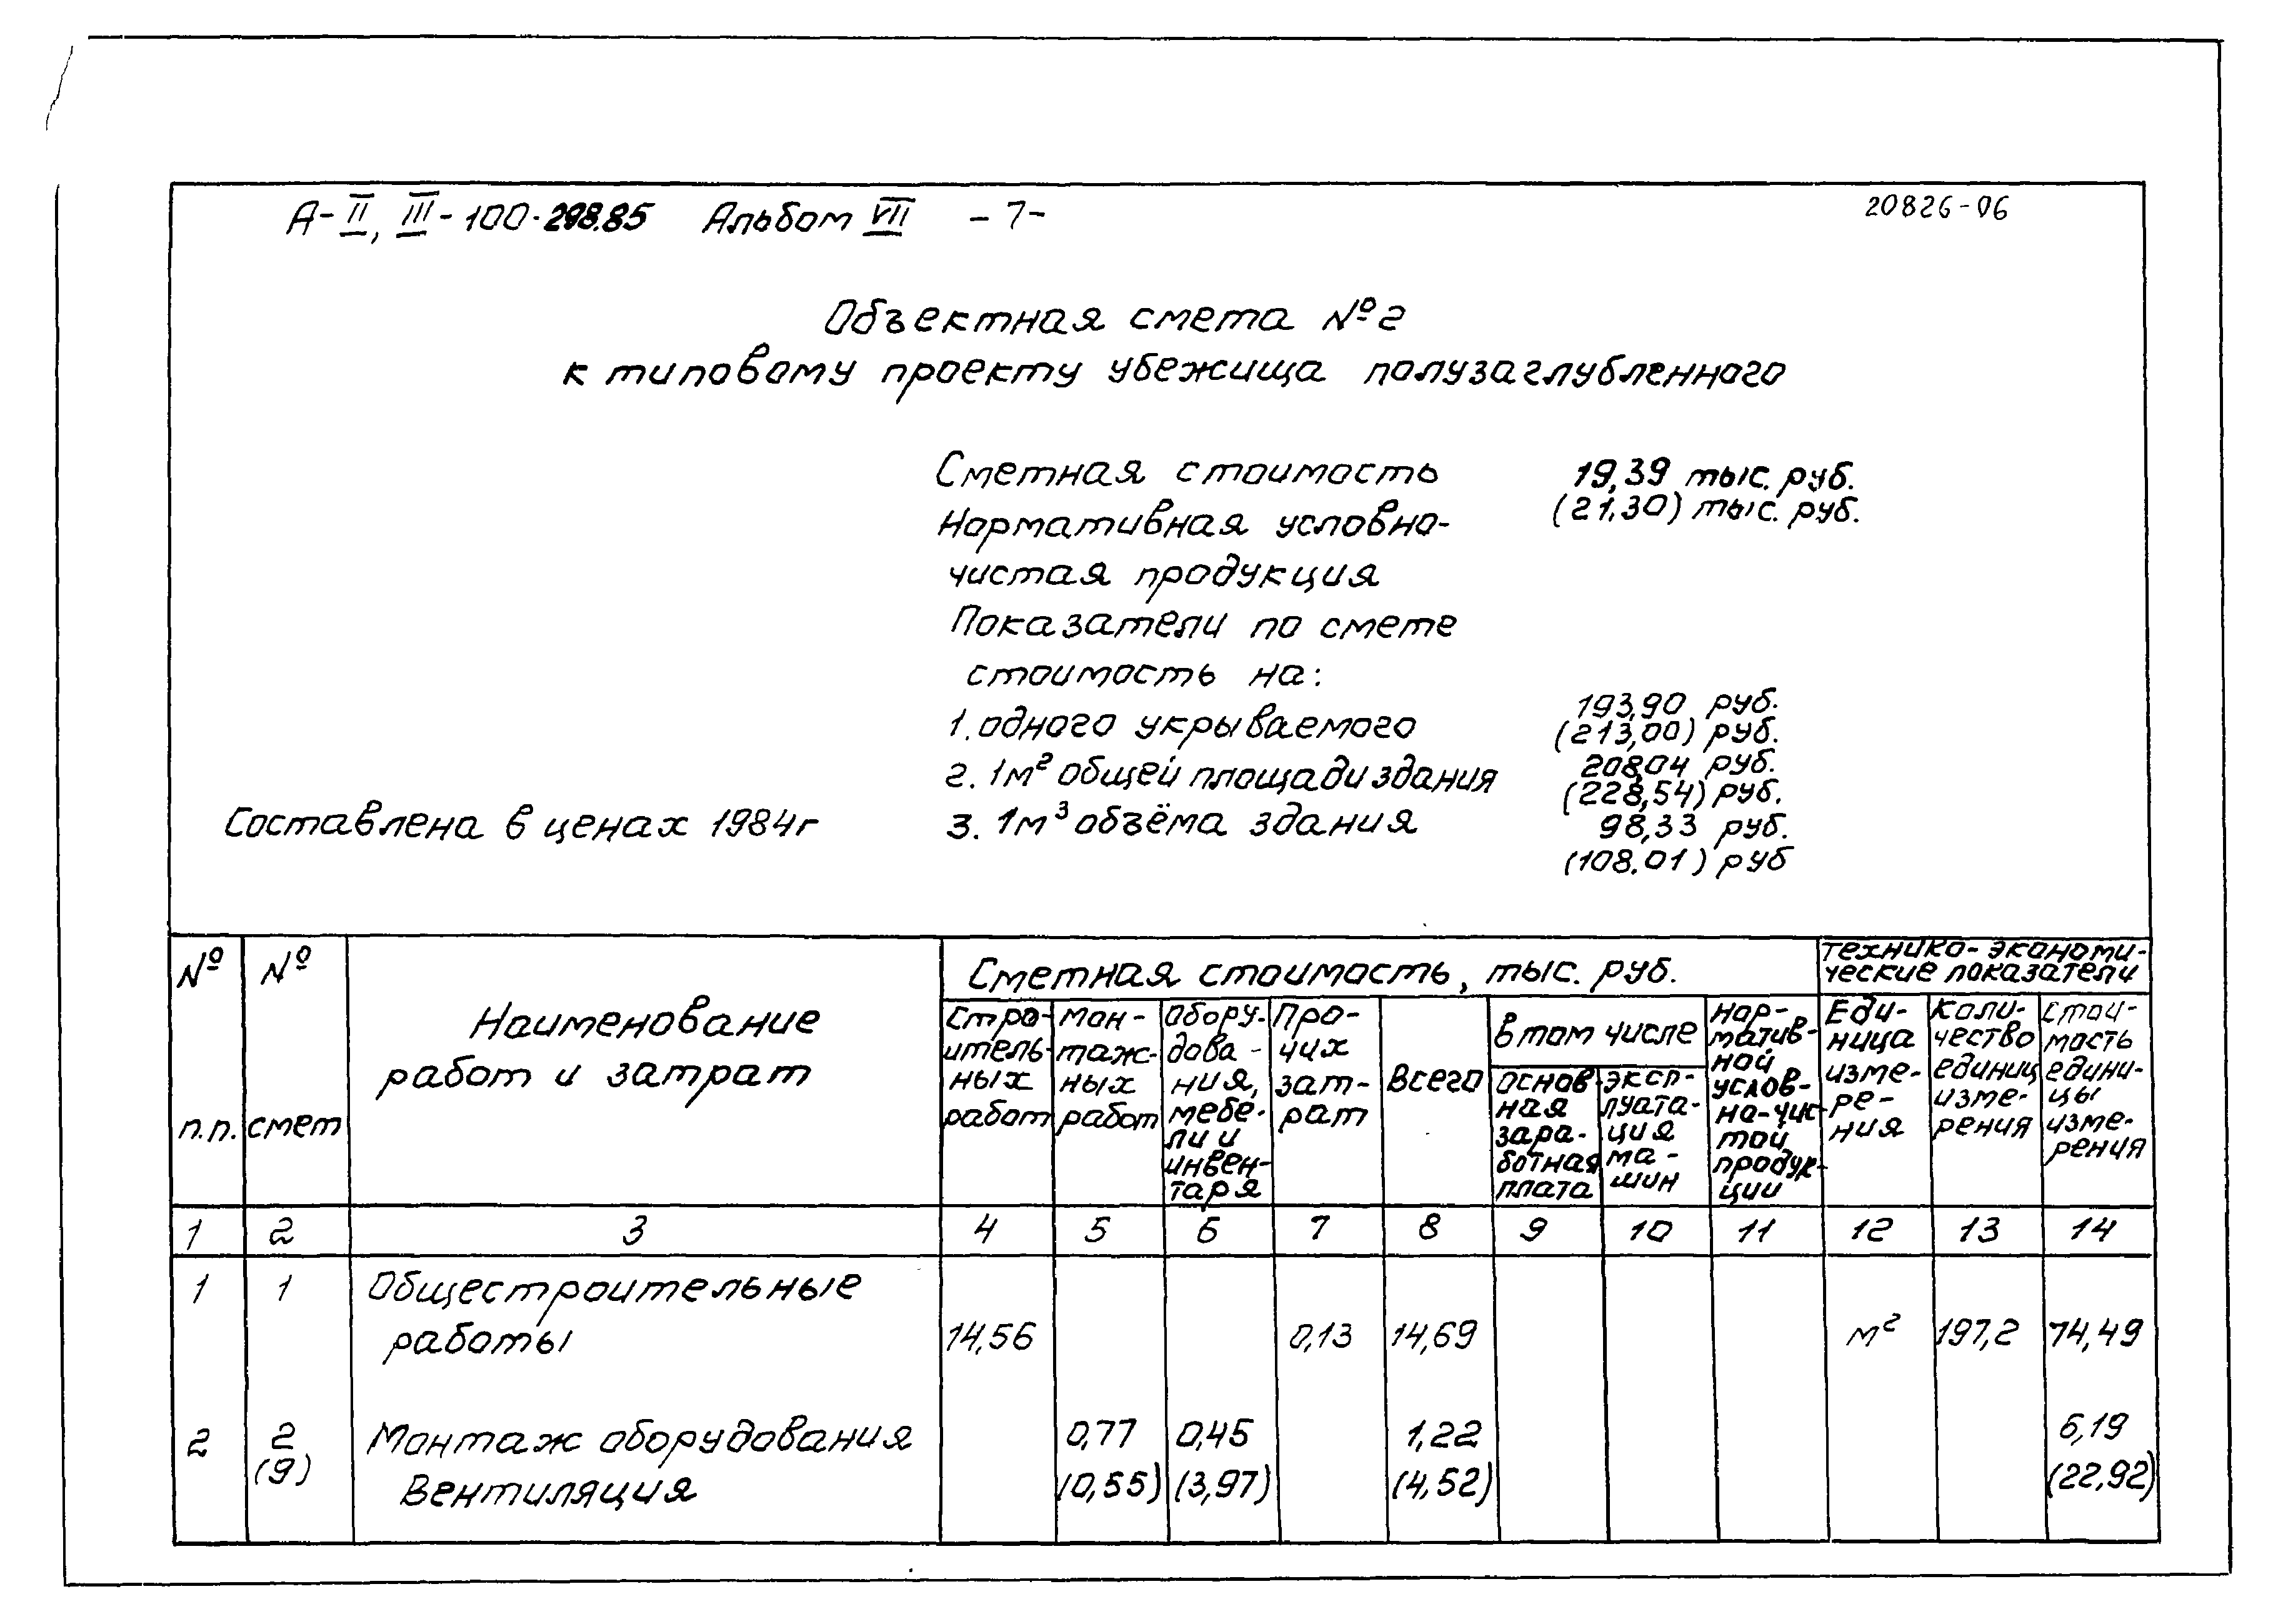 А-II, III-100-298.85 Альбом VII -7- 20826-06
Объектная смета № 2
к типовому проекту убежища полузаглубленного
Сметная стоимость 19,39 тыс. руб.
(21,30) тыс. руб.
Нормативная условно-
чистая продукция
Показатели по смете
стоимость на:
193,90 руб.
1. одного укрываемого (213,00) руб.
208,04 руб.
2. 1м² общей площади здания (228,54) руб.
Составлена в ценах 1984г 3. 1м³ объёма здания 98,33 руб.
(108.01) руб
№ п.п.
№ смет
Наименование
работ и затрат
Сметная стоимость, тыс. руб.
Стро-
итель-
ных
работ
мон-
таж-
ных
работ
обору-
дова-
ния,
мебе-
ли и
инвен-
таря
Про-
чих
зат-
рат
Всего
в том числе
основ
ная
зара-
ботная
плата
эксп-
луата-
ция
ма-
шин
нор-
матив-
ной
услов-
но-чис-
той
продук-
ции
технико-экономи-
ческие показатели
Еди-
ница
изме-
ре-
ния
Коли-
чество
единиц
изме-
рения
Стои-
мость
едини-
цы
изме-
рения
1 2 3 4 5 6 7 8 9 10 11 12 13 14
1 1 Общестроительные
работы 14,56 0,13 14,69 м² 197,2 74,49
2 2 Монтаж оборудования 0,77 0,45 1,22 6,19
(9) Вентиляция (0,55) (3,97) (4,52) (22,92)